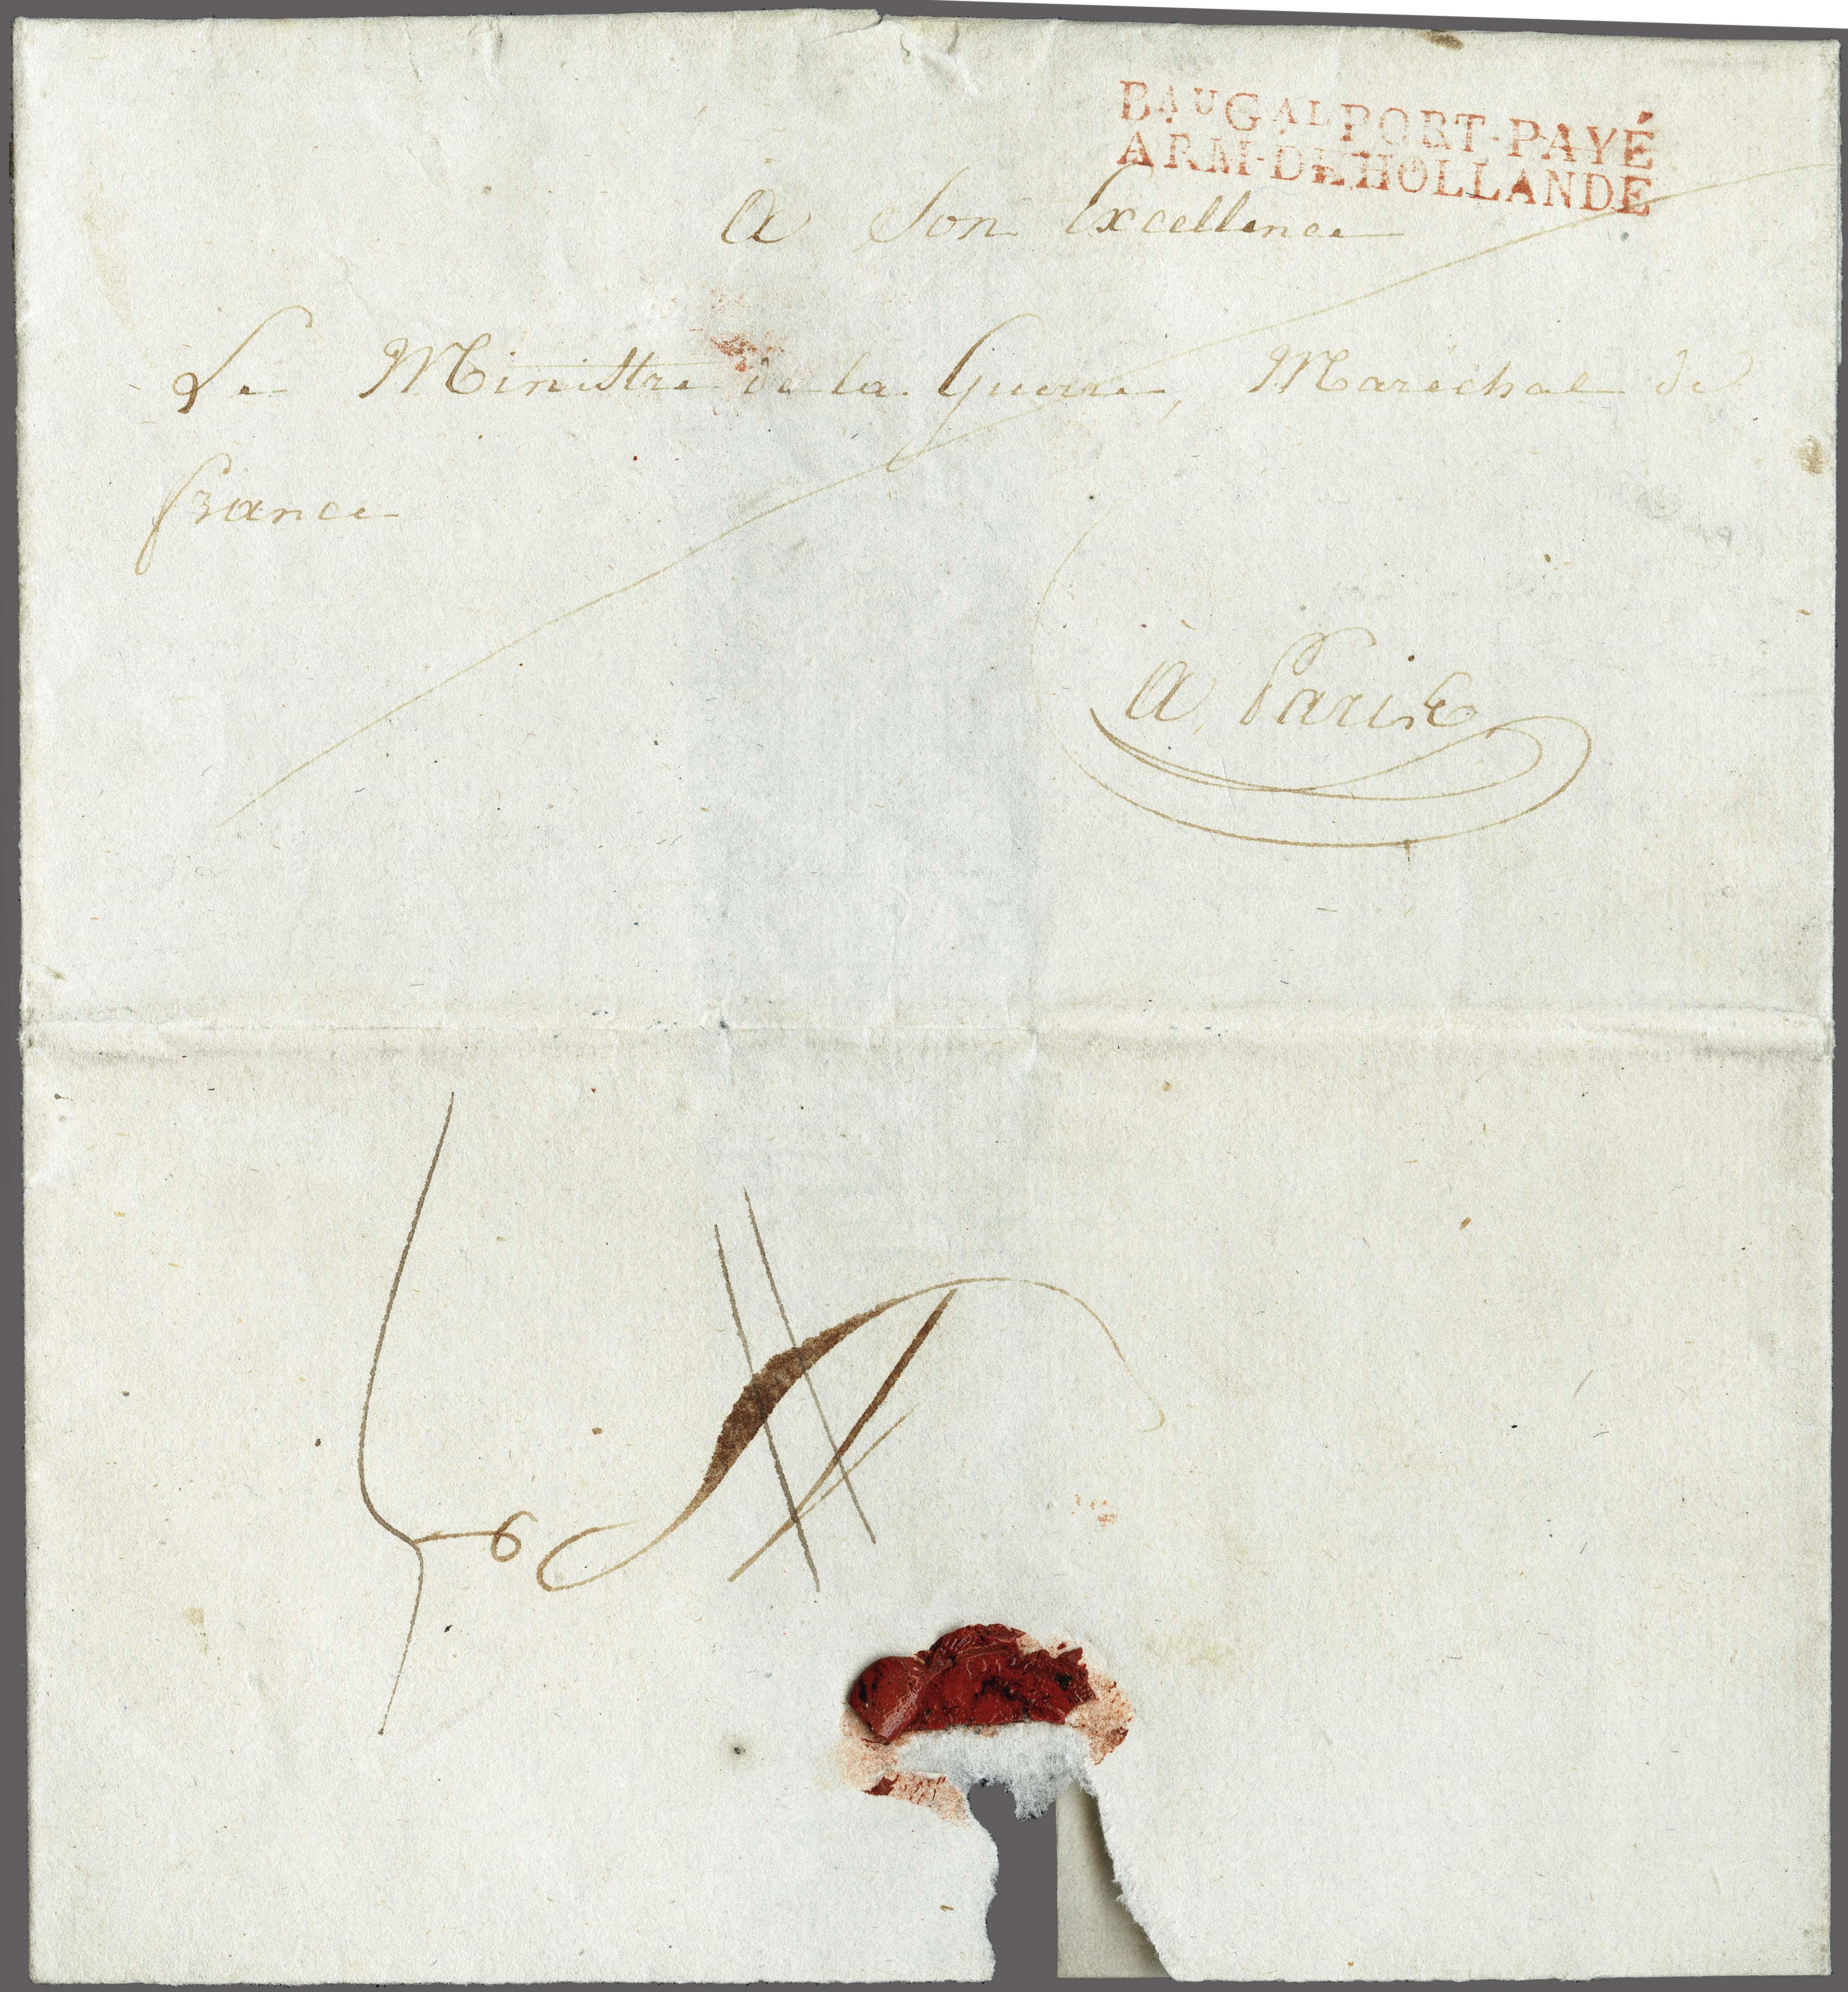 BAUGALPORT-PAYÉ
ARM-DE HOLLANDE
A Son Excellence
Le Ministre de la Guerre, Maréchal de
france
à Paris